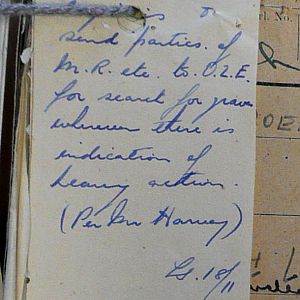 send parties of
M.R. etc. to O.Z.E.
for search for graves
wherever there is
indication of
heavy action.
(Per Mr Harvey)
18/11